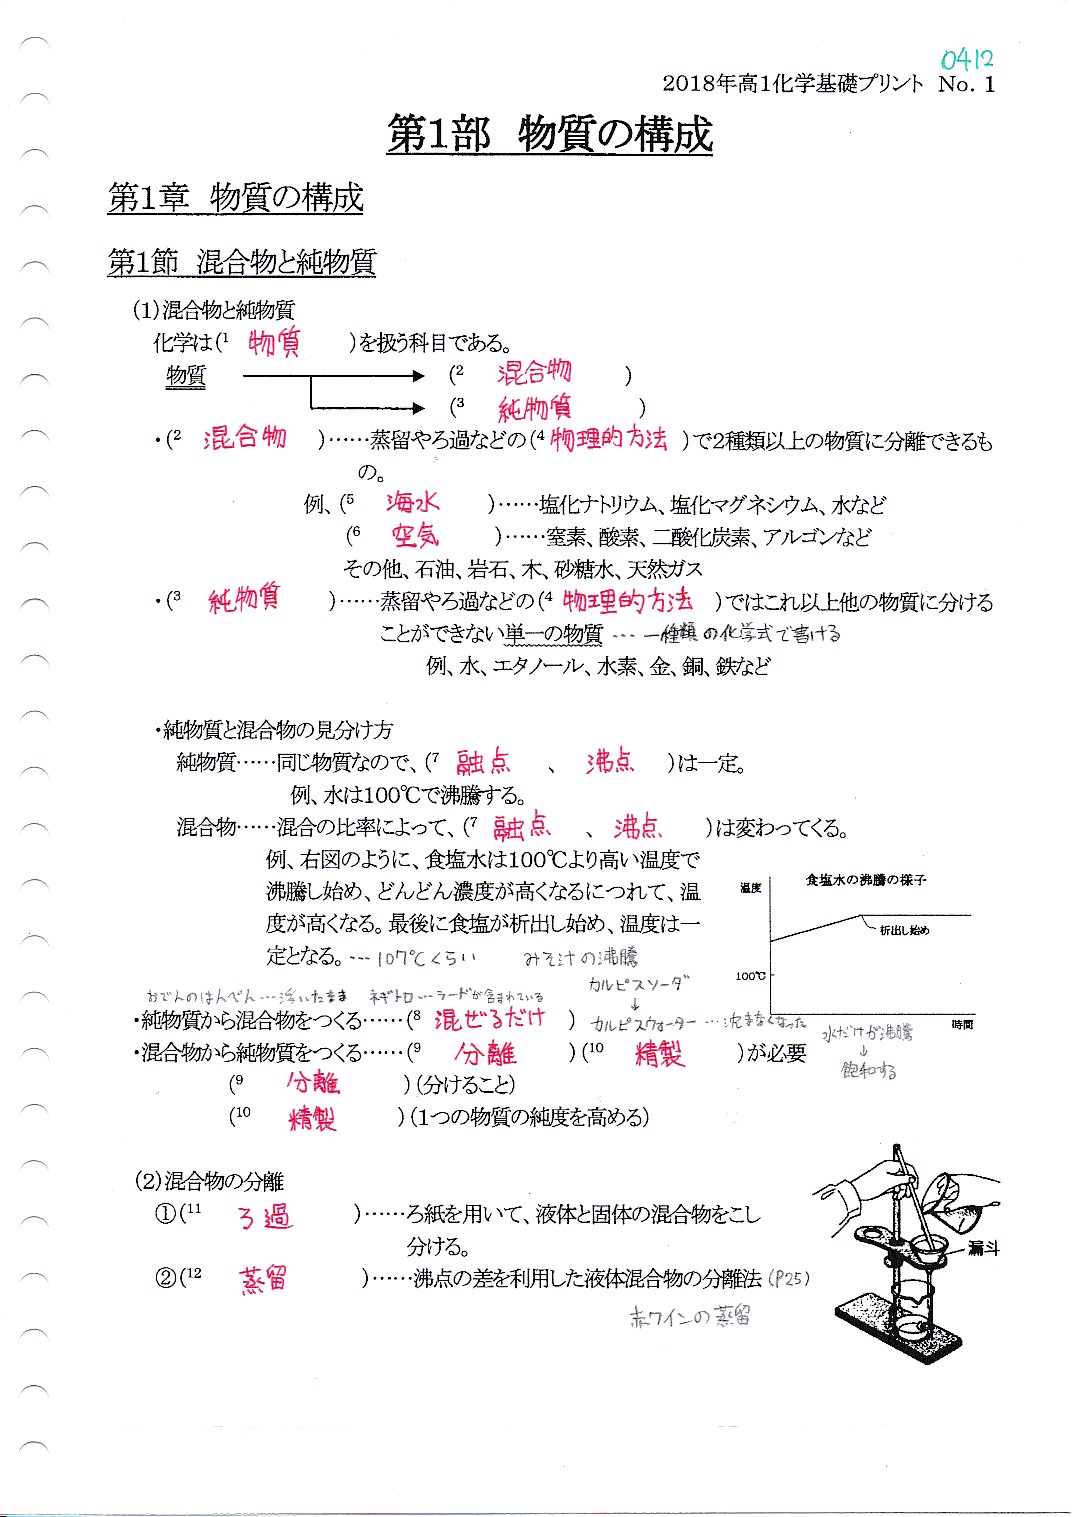 0412
2018年高1化学基礎プリント No. 1
第1部 物質の構成
第1章 物質の構成
第1節 混合物と純物質
(1)混合物と純物質
化学は(1 物質 )を扱う科目である。
物質 (2 混合物 )
(3 純物質 )
・(2 混合物 )……蒸留やろ過などの(4 物理的方法 )で2種類以上の物質に分離できるも
の。
例、(5 海水 )……塩化ナトリウム、塩化マグネシウム、水など
(6 空気 )……窒素、酸素、二酸化炭素、アルゴンなど
その他、石油、岩石、木、砂糖水、天然ガス
・(3 純物質 )……蒸留やろ過などの(4 物理的方法 )ではこれ以上他の物質に分ける
ことができない単一の物質 … 一種類の化学式で書ける
例、水、エタノール、水素、金、銅、鉄など
・純物質と混合物の見分け方
純物質……同じ物質なので、(7 融点 、 沸点 )は一定。
例、水は100℃で沸騰する。
混合物……混合の比率によって、(7 融点 、 沸点 )は変わってくる。
例、右図のように、食塩水は100℃より高い温度で
沸騰し始め、どんどん濃度が高くなるにつれて、温
度が高くなる。最後に食塩が析出し始め、温度は一
定となる。…107℃くらい みそ汁の沸騰
食塩水の沸騰の様子
温度
析出し始め
100℃
時間
水だけが沸騰
↓
飽和する
おでんのはんぺん…浮いたまま ネギトロ…ラードが含まれている
カルピスソーダ
↓
カルピスウォーター …沈まなくなった
・純物質から混合物をつくる……(8 混ぜるだけ )
・混合物から純物質をつくる……(9 分離 )(10 精製 )が必要
(9 分離 )(分けること)
(10 精製 )(1つの物質の純度を高める)
(2)混合物の分離
①(11 ろ過 )……ろ紙を用いて、液体と固体の混合物をこし
分ける。
漏斗
②(12 蒸留 )……沸点の差を利用した液体混合物の分離法(P25)
赤ワインの蒸留